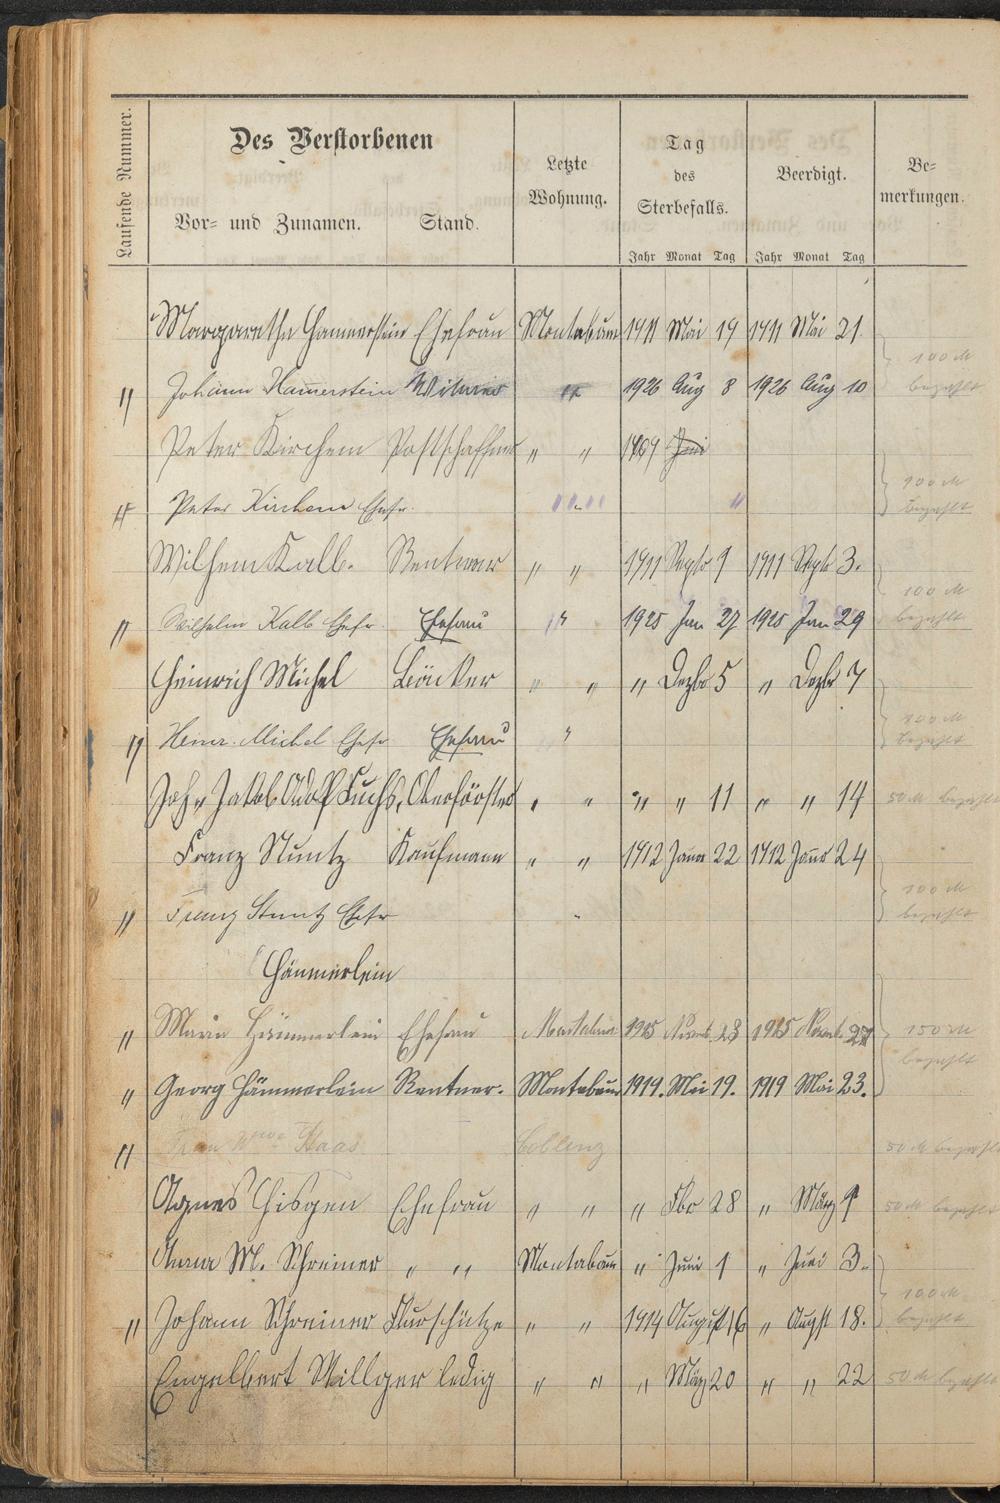 Laufende Nummer.
Des Verstorbenen
Vor- und Zunamen. Stand.
Letzte Wohnung.
Tag des Sterbefalls.
Beerdigt.
Bemerkungen.
Jahr Monat Tag Jahr Monat Tag
Margaretha Hammerstein Ehefrau Montabaur 1911 Mai 19 1911 Mai 21
" Johann Hamerstein " 1926 Aug 8 1926 Aug 10 100 M bezahlt
Peter Kirchem Postschaffner " " 1909 Juni
" Peter Kirchem Ehefr. " " " 100 M bezahlt
Wilhem Kalb. Rentner " " 1911 Septr 1 1911 Septr 3.
" Wilhelm Kalb Ehefr. Ehefrau " 1925 Jan 27 1925 Jan 29 100 M bezahlt
Heinrich Michel Bäcker " " " Dezbr 5 " Dezbr 7
" Heinr. Michel Ehefr Ehefrau " 100 M bezahlt
Joh. Jakob Adolf Fuchs, Oberförster " " " " 11 " " 14 50 M bezahlt
Franz Stuntz Kaufmann " " 1912 Janr 22 1912 Janr 24
" Franz Stuntz Ehefr " 100 M bezahlt
Hämmerlein
" Maria Hämmerlein Ehefrau Montabaur 1925 Novemb. 23 1925 Novemb. 27 150 M bezahlt
" Georg Hämmerlein Rentner. Montabaur 1919. Mai 19. 1919 Mai 23.
" Frau Wwe Haas Coblenz 50 M bezahlt
Agnes Hisgen Ehefrau " " " Fbr 28 " März 1 50 M bezahlt
Anna M. Schreiner " " Montabaur " Juni 1 " Juni 3.
" Johann Schreiner Flurschütze " " 1914 August 16 " August 18. 100 M bezahlt
Engelbert Willger ledig " " " März 20 " " 22 50 M bezahlt